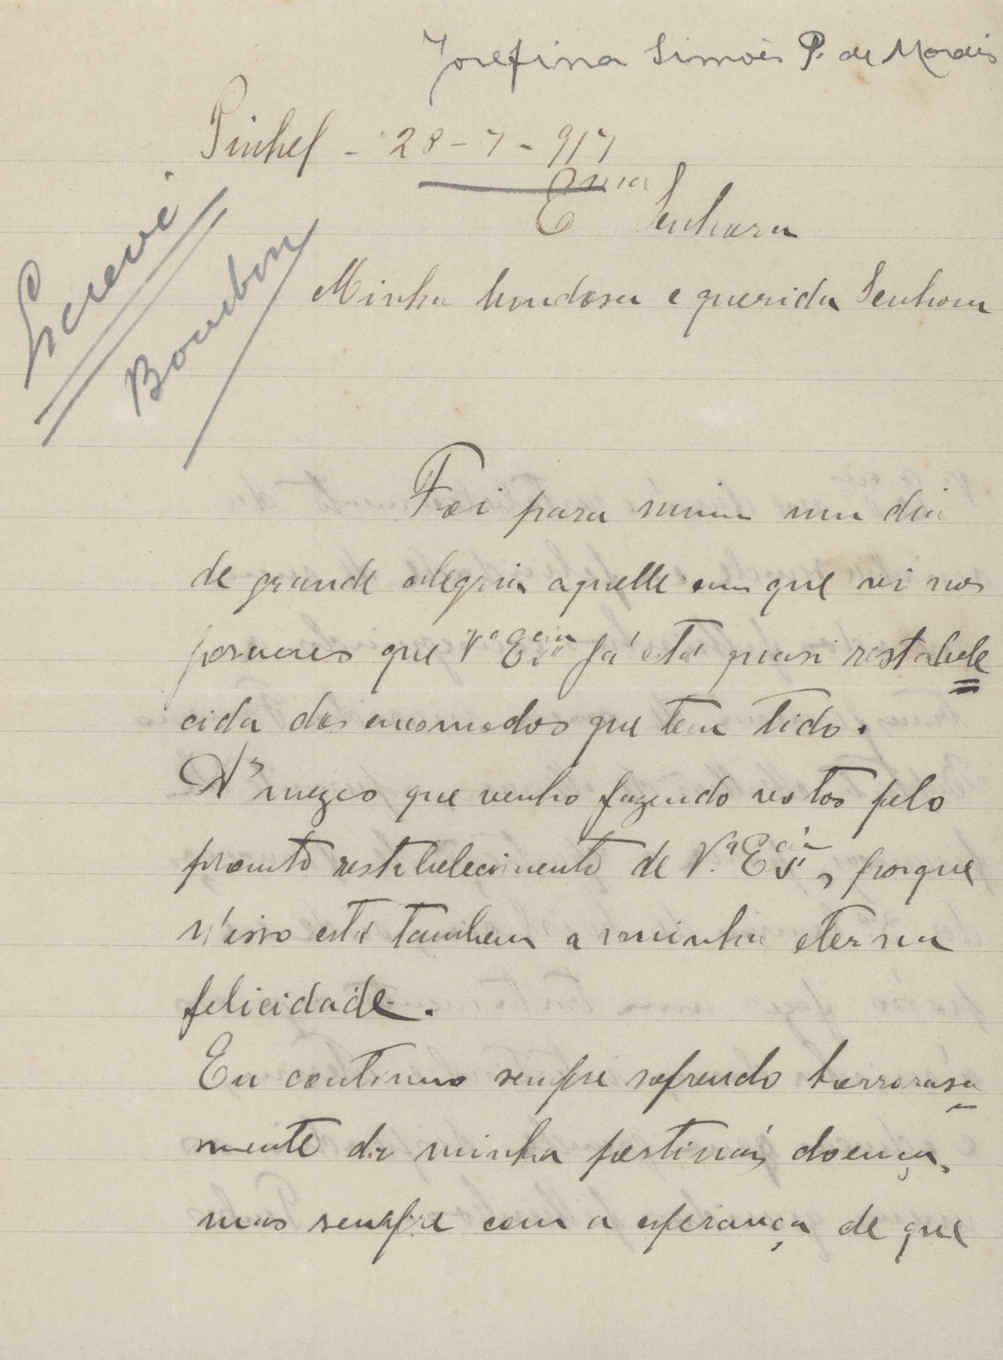 Josefina Simões P. de Morais
Pinhel - 28-7-917
Escrevi
Bourbon
Exma Senhora
Minha bondosa e querida Senhora
Foi para mim um dia
de grande alegria aquelle em que vi nos
jornaes que V.ª Ex.cia já está quasi restabele
cida dos encomodos que tem tido.
Há mezes que venho fazendo votos pelo
prompto restabelecimento de V.ª Ex.cia, porque
n'isso está tambem a minha eterna
felicidade.
Eu continuo sempre sofrendo horrorosa
mente da minha pertinás doença,
mas sempre com a esperança de que